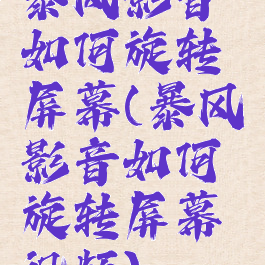 暴风影音
如何旋转
屏幕(暴风
影音如何
旋转屏幕
视频)